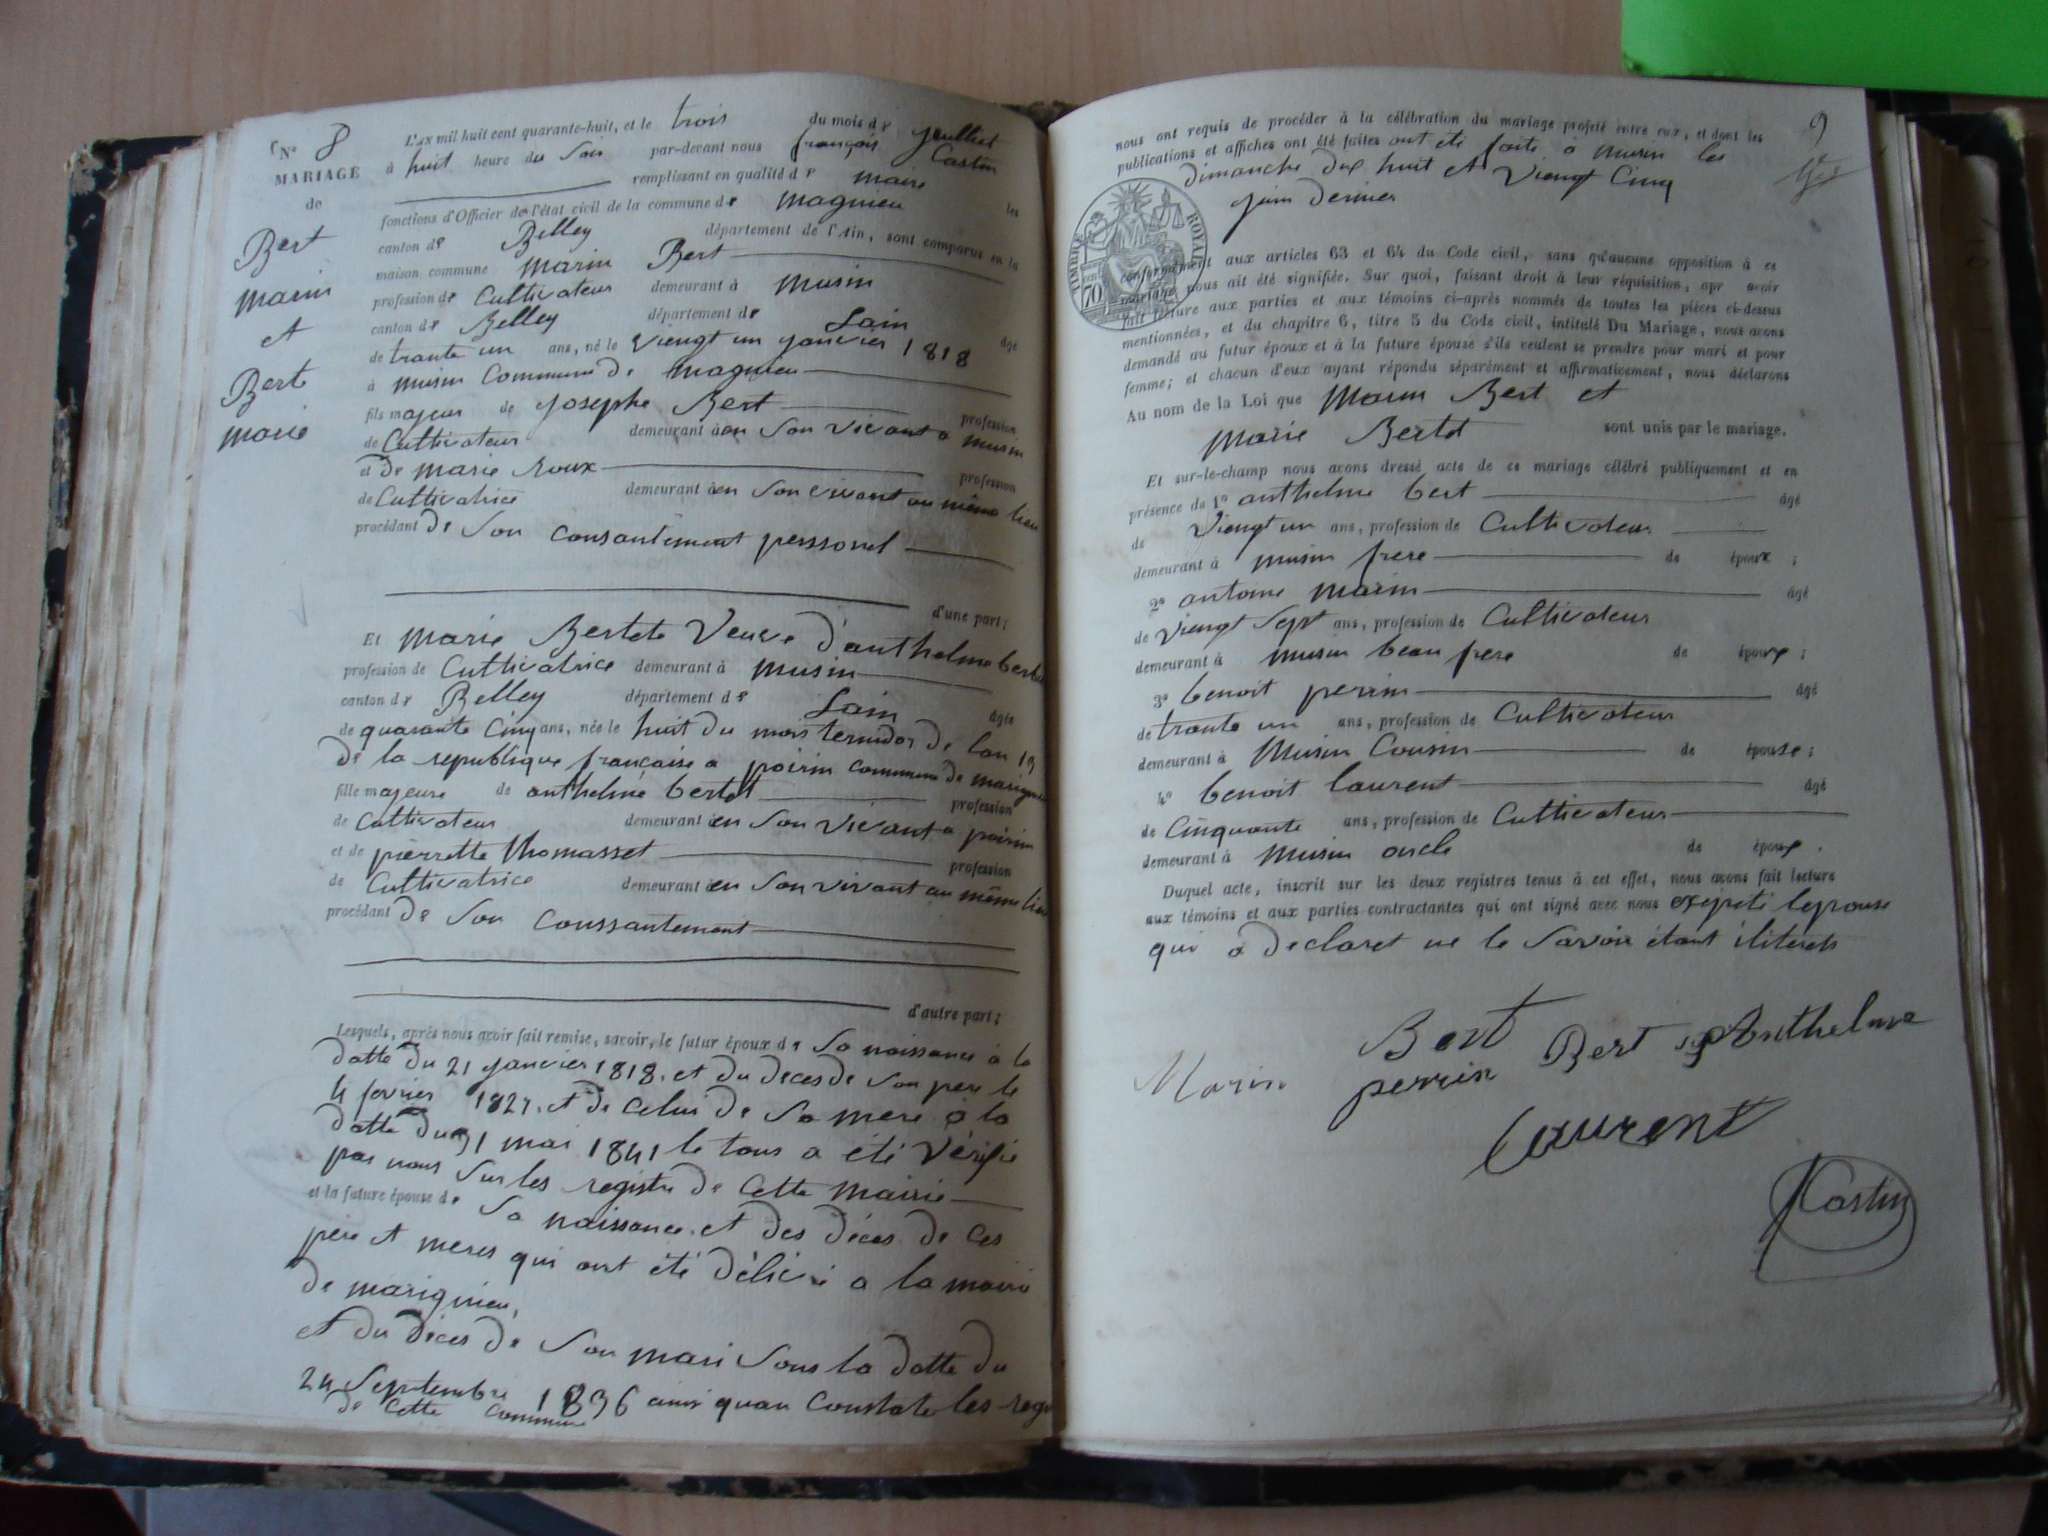 No 8
MARIAGE
de
Bert
Marin
et
Berte
marie
L'an mil huit cent quarante-huit, et le trois du mois de Juilliet
à huit heure du soir par-devant nous françois Castin
remplissant en qualité de maire
fonctions d'Officier de l'état civil de la commune de magnieu les
canton de Belley département de l'Ain, sont comparus en la
maison commune Marin Bert
profession de Cultivateur demeurant à musin
canton de Belley département de Lain âgé
de trante un ans, né le viengt un janvier 1818
à musin Commune de magnieu
fils majeur de Josephe Bert profession
de Cultivateur demeurant à en son vivant a musin
et de marie Roux profession
de Cultivatrice demeurant à en son vivant au même lieu
procédant de son consantement perssonel
d'une part;
Et marie Bertet Veuve d'anthelme bert
profession de Cultivatrice demeurant à musin
canton de Belley département de Lain âgée
de quarante cinq ans, née le huit du mois termidor de lan 13
de la republique française a poirin commune de marignieu
fille majeure de anthelme bertet profession
de Cultivateur demeurant à en son vivant a poirin
et de pierrette thomasset profession
de Cultivatrice demeurant à en son vivant au même lieu
procédant de son conssantement
d'autre part;
Lesquels, après nous avoir fait remise, savoir, le futur époux de sa naissance à la
datte du 21 janvier 1818. et du deces de son pere le
4 fevrier 1827. et de celui de sa mere a la
datte du 31 mai 1841 le tous a été vérifié
par nous sur les registre de cette mairie
et la future épouse de sa naissance. et des déces de ces
père et meres qui ont été délivré a la mairie
de marignieu,
et du déces de son mari sous la datte du
24 septembre 1836 ainsi quan constate les regi
de cette commune
9
nous ont requis de procéder à la célébration du mariage projeté entre eux, et dont les
publications et affiches ont été faites ont été faite a musin les
dimanche dix huit et viengt cinq
juin dernier
TIMBRE ROYAL
70
conformément aux articles 63 et 64 du Code civil, sans qu'aucune opposition à ce
mariage nous ait été signifiée. Sur quoi, faisant droit à leur réquisition, apr avoir
fait lecture aux parties et aux témoins ci-après nommés de toutes les pièces ci-dessus
mentionnées, et du chapitre 6, titre 5 du Code civil, intitulé Du Mariage, nous avons
demandé au futur époux et à la future épouse s'ils veulent se prendre pour mari et pour
femme; et chacun d'eux ayant répondu séparément et affirmativement, nous déclarons
Au nom de la Loi que Marin Bert et
Marie Bertet sont unis par le mariage.
Et sur-le-champ nous avons dressé acte de ce mariage célébré publiquement et en
présence de 1o anthelme bert âgé
de viengt un ans, profession de Cultivateur
demeurant à musin frere de époux ;
2o antoine marin âgé
de viengt sept ans, profession de Cultivateur
demeurant à musin beau frere de époux ;
3o benoit perrin âgé
de trante un ans, profession de Cultivateur
demeurant à Musin Cousin de épouse ;
4o benoit laurent âgé
de Cinquante ans, profession de Cultivateur
demeurant à musin oncle de époux .
Duquel acte, inscrit sur les deux registres tenus à cet effet, nous avons fait lecture
aux témoins et aux parties contractantes qui ont signé avec nous exepeté lepouse
qui a declaret ne le savoir étant iliterets
Bert Bert Anthelme
Marin perrin
Laurent
Castin